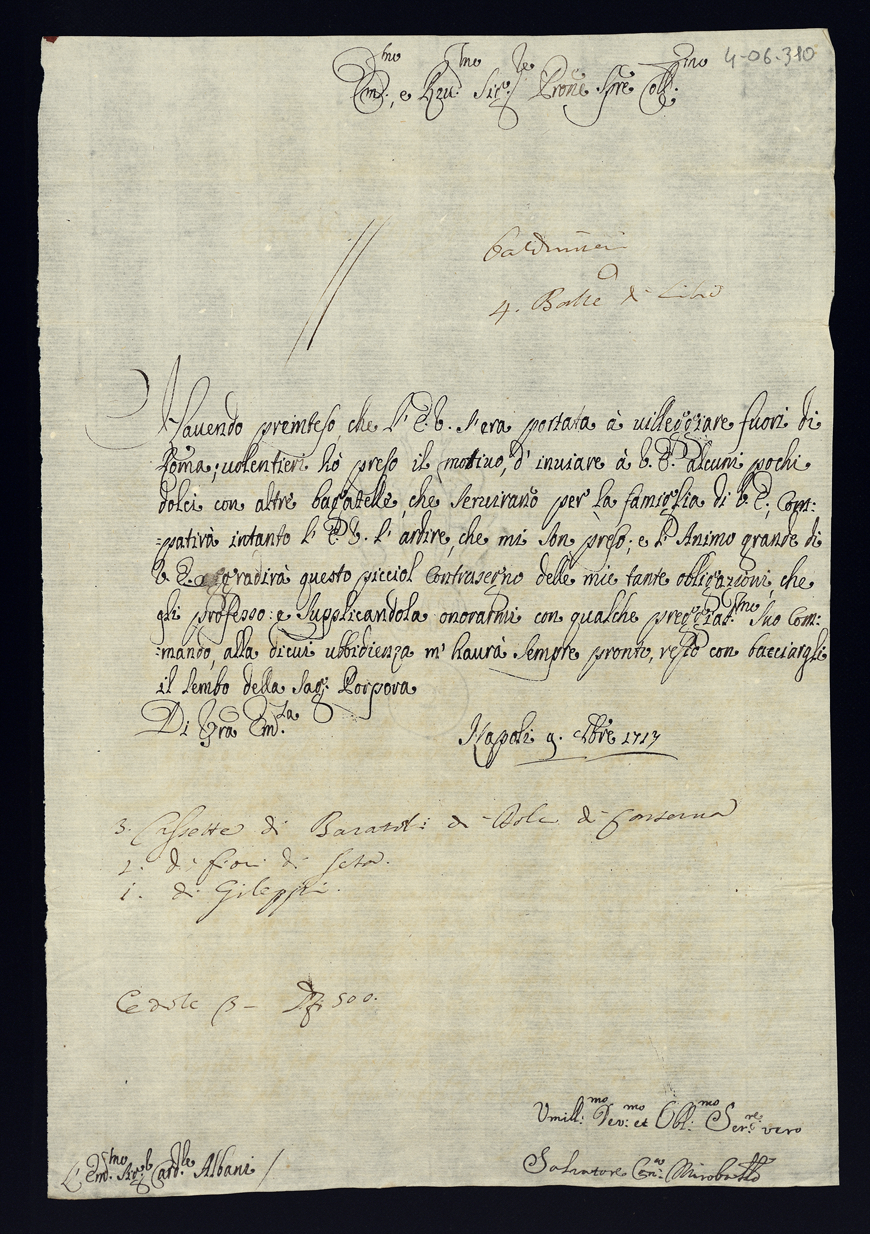 4-06.310
Em.mo, e Rev.mo Sig.re Prone Sre Coll.mo
4. Balle di
Havendo preinteso, che l' E.V. s'era portata à villeggiare fuori di
Roma; volentieri hò preso il motivo, d' inviare à V.E. alcuni pochi
dolci con altre bagatelle, che serviranò per la famiglia di V.E.; Com:
:patirà intanto l' E.V. l' ardire, che mi son preso; e l' Animo grande di
V.E. aggradirà questo picciol contrasegno delle mie tante obligazioni, che
gli professo: e supplicandola onorarmi con qualche preggiat.mo suo Com:
:mando, alla dicui ubbidienza m' haurà sempre pronto, resto con bacciargli
il lembo della Sag: Porpora
Di Vra Em.za
Napoli 9. Xbre 1717
3. Cassette di di
2. di fiori di seta.
1. di Gileppi.
Cedole 3 - 500.
Umill:mo Dev:mo et Obl:mo Ser:re vero
L' Em.mo Sig.r Card.le Albani /
Salvatore Miroballo